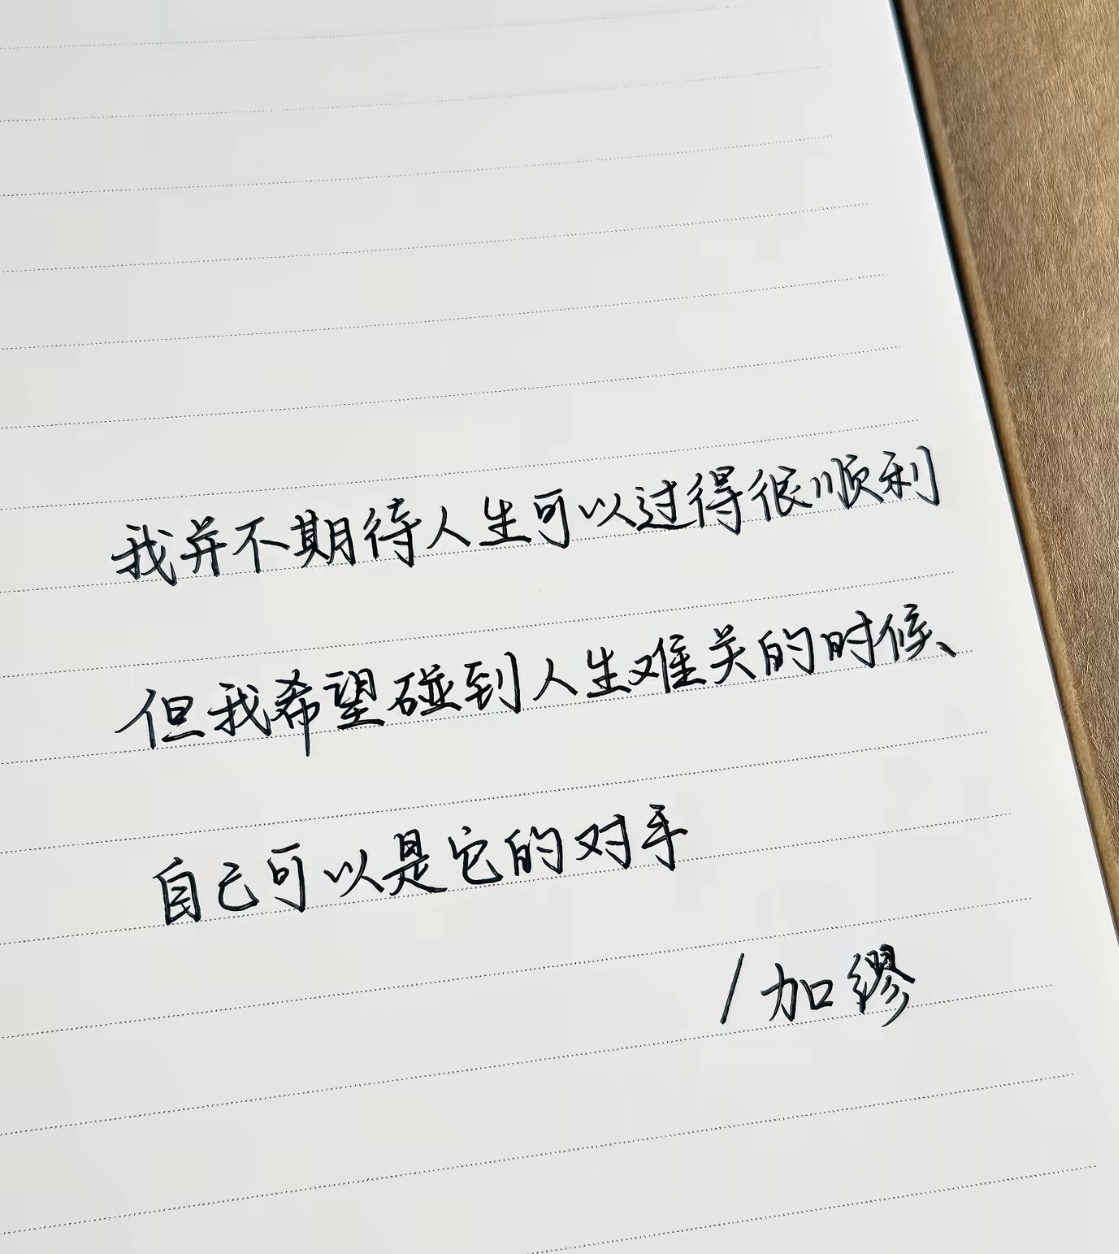 我并不期待人生可以过得很顺利
但我希望碰到人生难关的时候、
自己可以是它的对手
/加缪